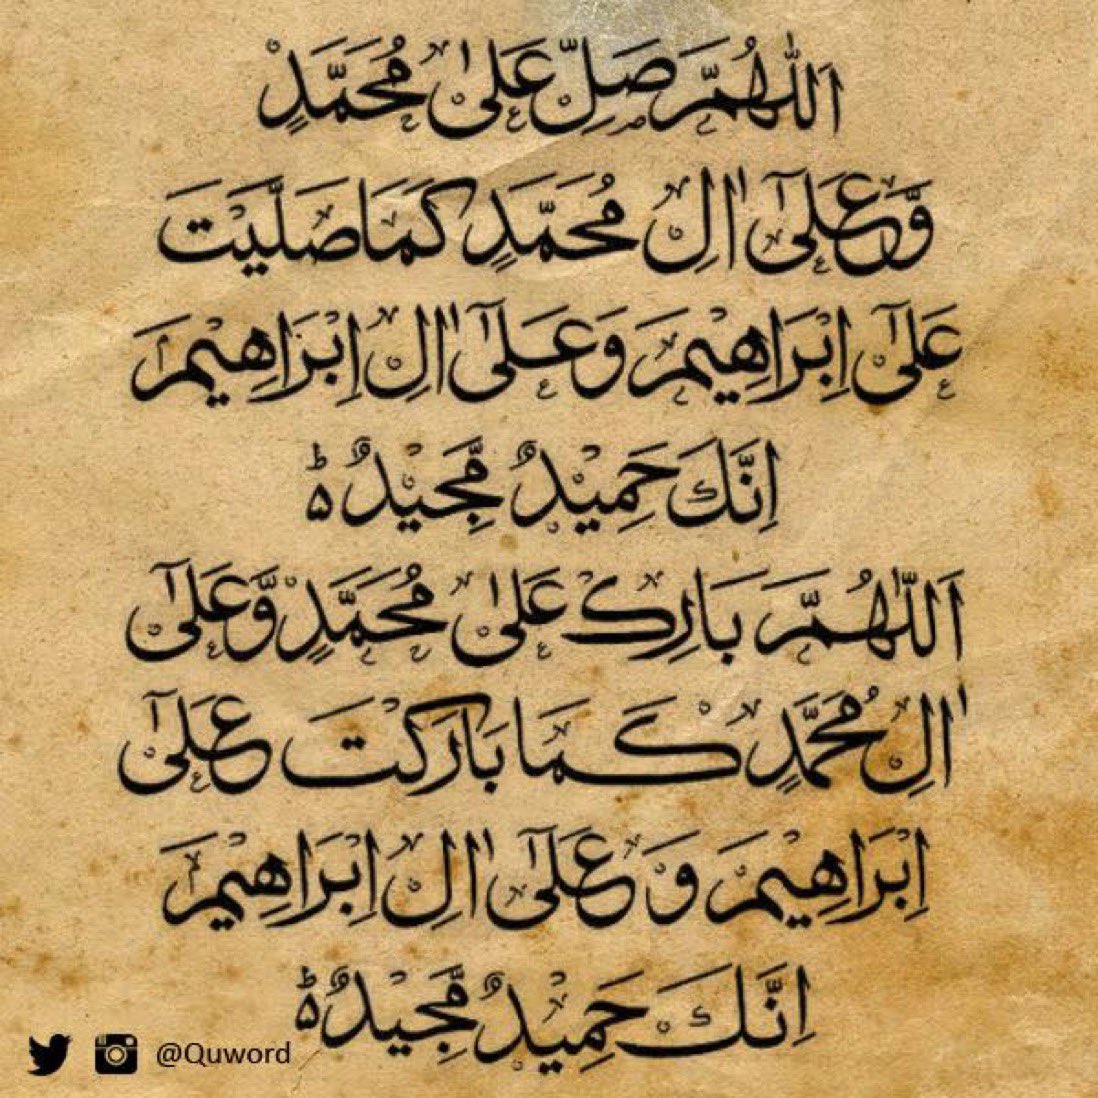 اَللّٰهُمَّ صَلِّ عَلٰی مُحَمَّدٍ
وَّعَلٰٓی اٰلِ مُحَمَّدٍ کَمَا صَلَّیْتَ
عَلٰٓی اِبْرَاهِیْمَ وَعَلٰٓی اٰلِ اِبْرَاهِیْمَ
اِنَّكَ حَمِیْدٌ مَّجِیْدٌ ؕ
اَللّٰهُمَّ بَارِكْ عَلٰی مُحَمَّدٍ وَّعَلٰٓی
اٰلِ مُحَمَّدٍ کَمَا بَارَکْتَ عَلٰٓی
اِبْرَاهِیْمَ وَعَلٰٓی اٰلِ اِبْرَاهِیْمَ
اِنَّكَ حَمِیْدٌ مَّجِیْدٌ ؕ
@Quword